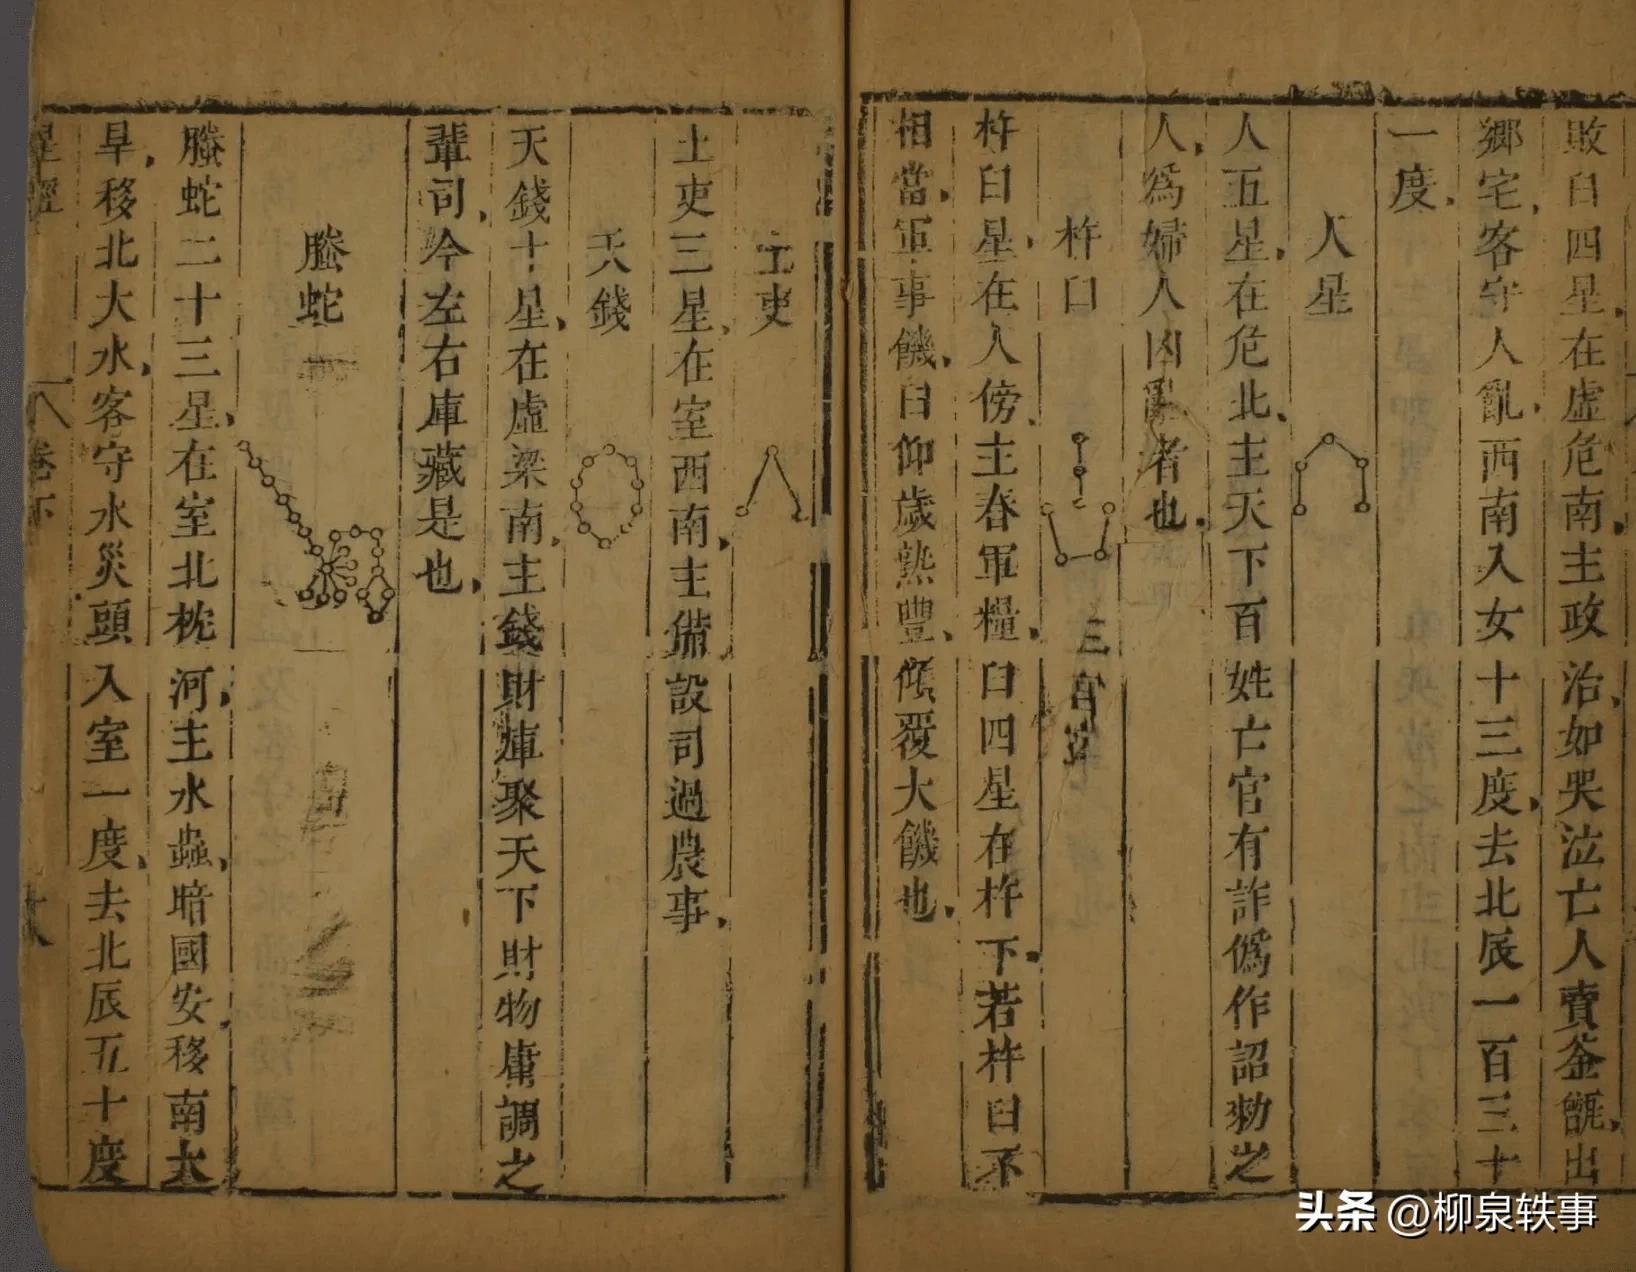 敗臼四星在虛危南主政治如哭泣亡人賣釜甑出
鄉宅客守人亂西南入女十三度去北辰一百三十
一度
人星
人五星在危北主天下百姓亡官有詐偽作詔勑之
人為婦人凶亂者也
杵臼
三官
杵臼星在人傍主春軍糧臼四星在杵下若杵臼不
相當軍事饑臼仰歲熟豐傾覆大饑也
土吏
土吏三星在室西南主備設司過農事
天錢
天錢十星在虛梁南主錢財庫聚天下財物庸調之
輩司今左右庫藏是也
螣蛇
螣蛇二十三星在室北枕河主水蟲暗國安移南大
旱移北大水客守水災頭入室一度去北辰五十度
星經
卷下
头条 @柳泉轶事